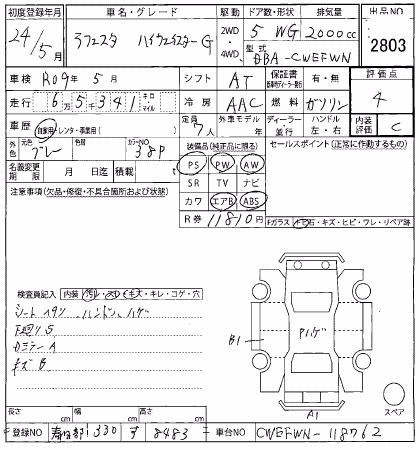 初度登録年月 車名・グレード 駆動 ドア数・形状 排気量 出品NO
24/5月 ラフェスタ ハイウェイスターG 2WD・4WD 5 WG 2000cc 2803
型式 DBA-CWEFWN
車検 R09年5月 シフト AT 保証書 有・無 評価点
走行 6万5千341 キロ マイル 冷房 AAC 燃料 ガソリン 4
車歴 自家用・レンタ・事業用( ) 定員 7人 外車モデル 年 ディーラー 並行 ハンドル 左・右 内装評価 C
外色 元色 グレー 色替 カラーNO 38P 装備品(純正品に限る) セールスポイント(正常に作動するもの)
名義変更期限 月 日迄 積載 t PS PW AW
注意事項(欠品・修復・不具合箇所および状態) SR TV ナビ
カワ エアB ABS
R券 11810円 Fガラス キズ・ヒビ・ワレ・リペア跡
検査員記入 内装 汚レ・スレ・キズ・キレ・コゲ・穴
シートヘタリ、ハンドルハゲ
下廻りS
カミラーA
キズB
B1
Pハゲ
A1
スペア
長さ cm 幅 cm 高さ cm
登録NO 春日部 330 す 8483 車台NO CWEFWN-118762